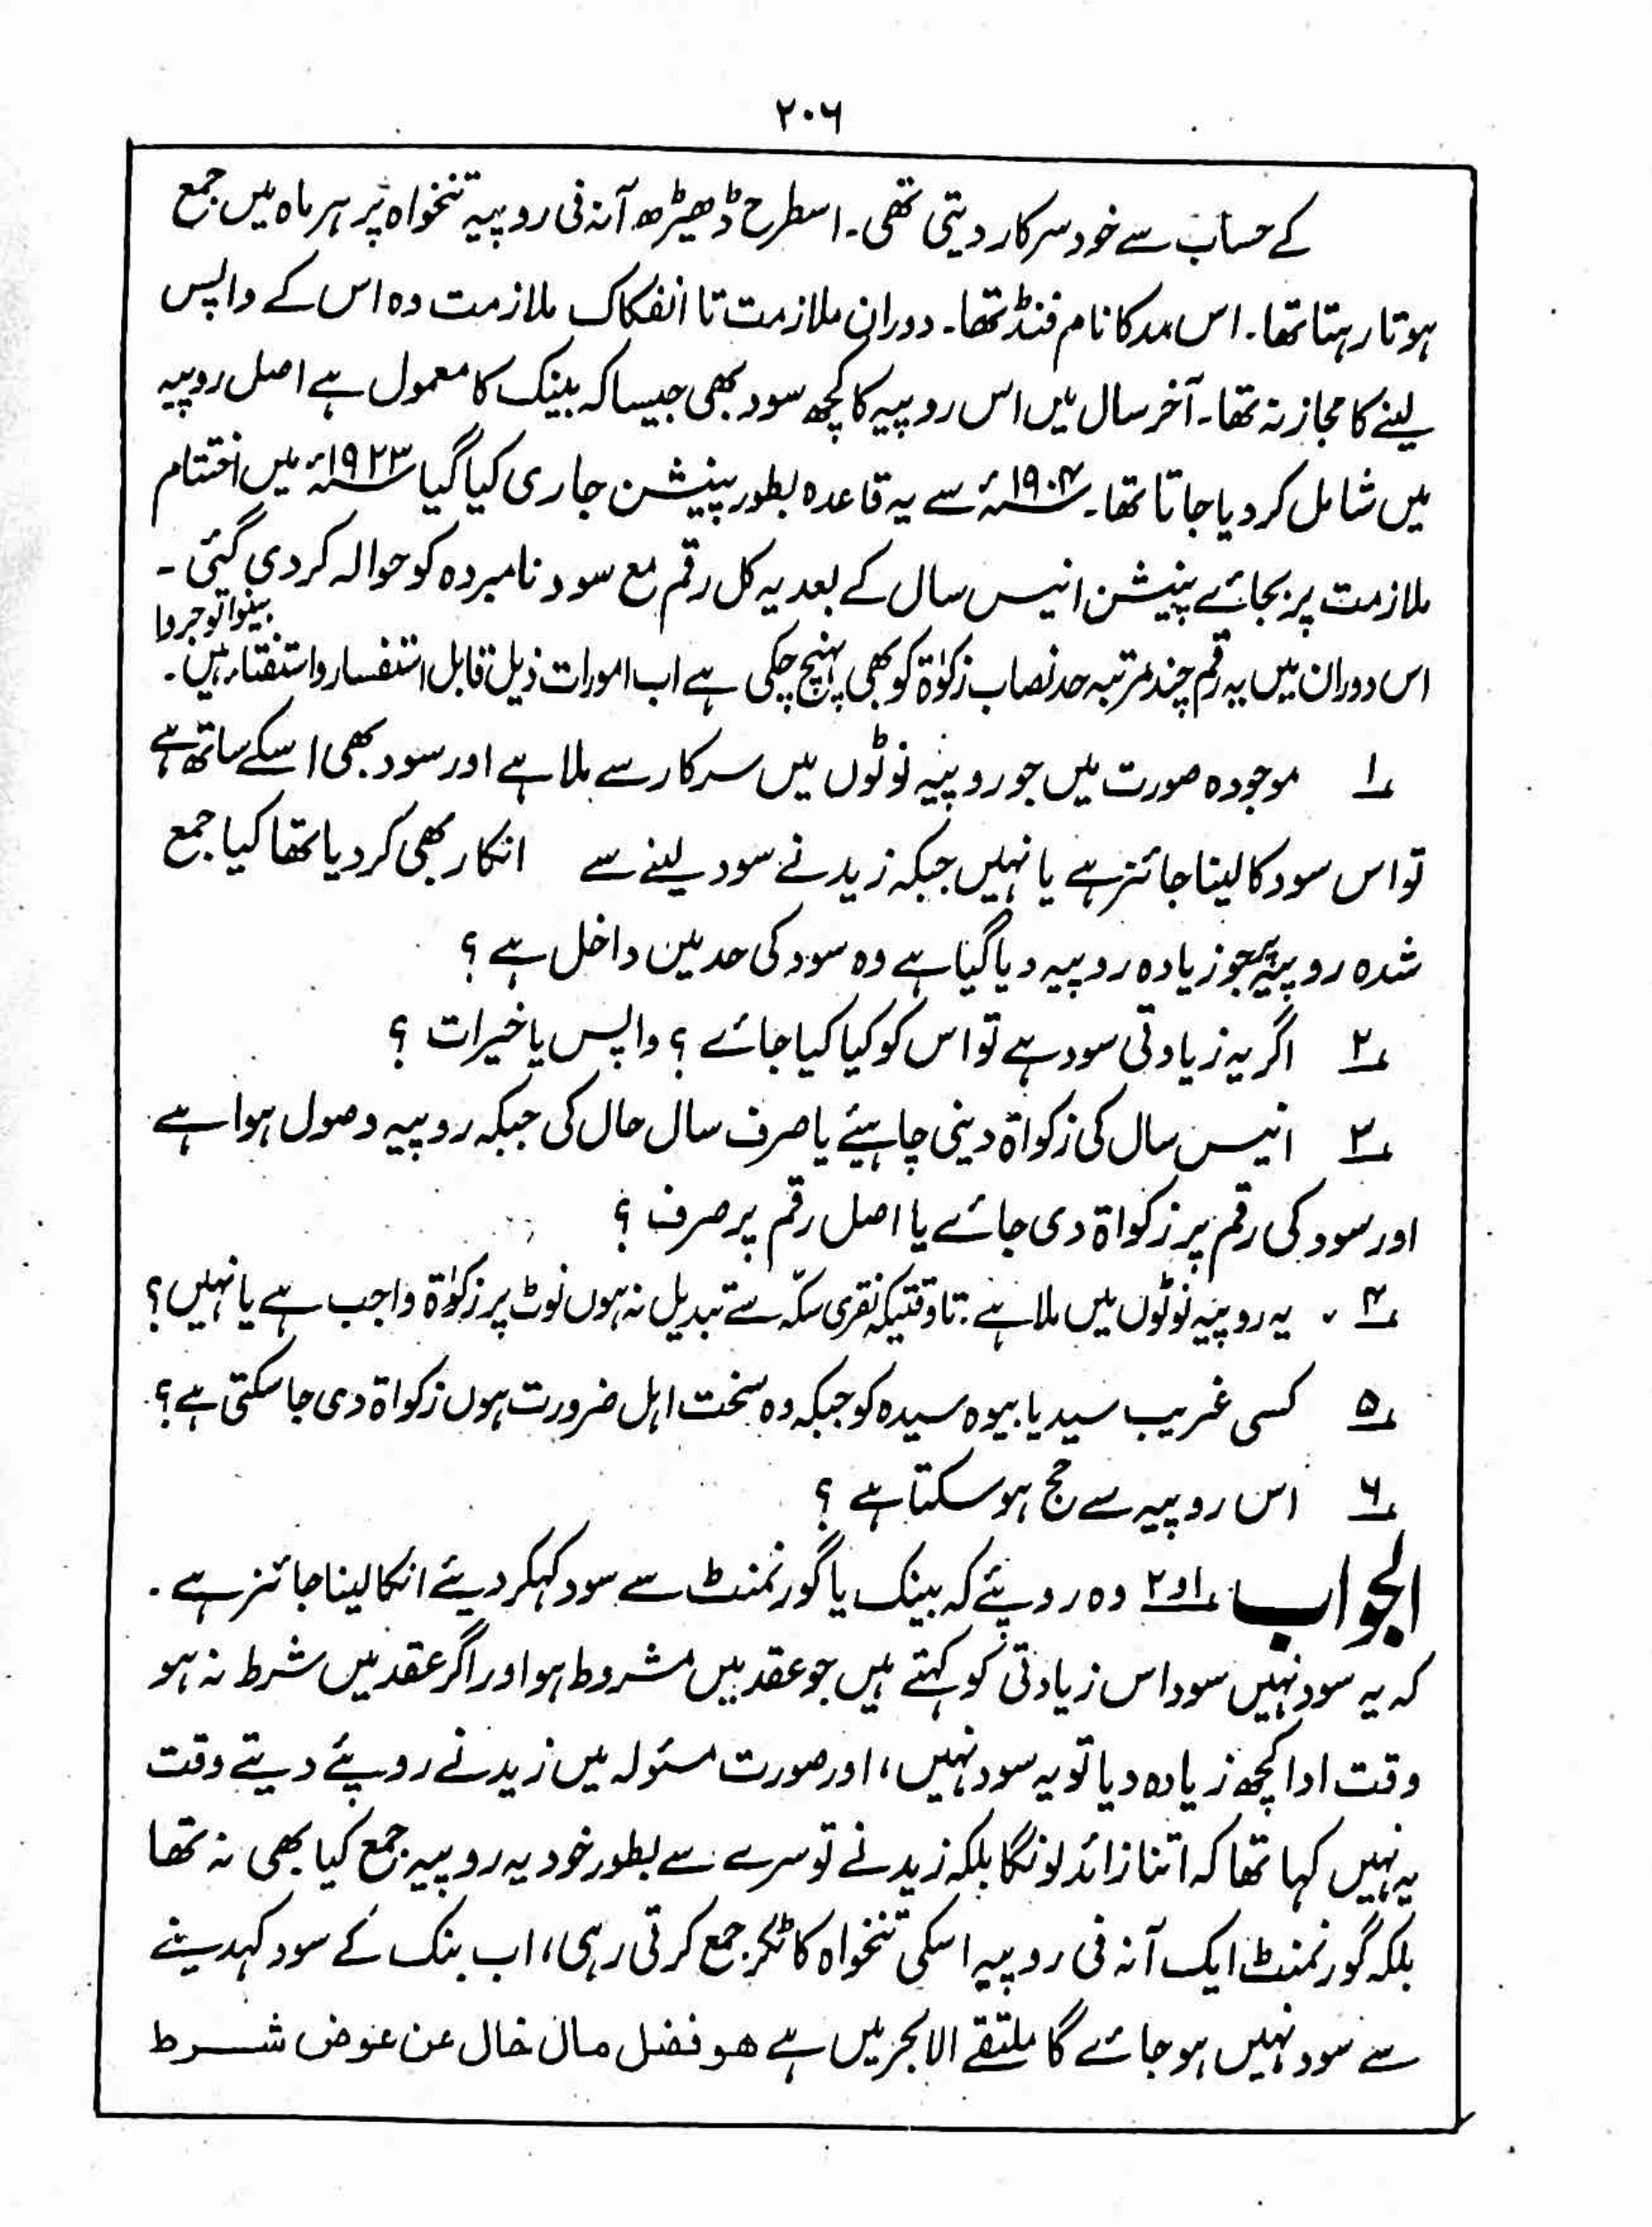 ۲۰۶
کے حساب سے خود سرکار دیتی تھی۔ اسطرح ڈھیڑھ آنہ فی روپیہ تنخواہ پر ہر ماہ میں جمع
ہوتا رہتا تھا۔ اس مد کا نام فنڈ تھا۔ دوران ملازمت تا انفکاک ملازمت وہ اس کے واپس
لینے کا مجاز نہ تھا۔ آخر سال میں اس روپیہ کا کچھ سود بھی جیسا کہ بینک کا معمول ہے اصل روپیہ
میں شامل کر دیا جاتا تھا۔ ۱۹۰۴ء سے یہ قاعدہ بطور پینشن جاری کیا گیا ۱۹۲۳ء میں اختتام
ملازمت پر بجائے پنیشن انیس سال کے بعد یہ کل رقم مع سود نامبردہ کو حوالہ کر دی گئی ۔
اس دوران میں یہ رقم چند مرتبہ حد نصاب زکوٰۃ کو بھی پہنچ چکی ہے اب امورات ذیل قابل استفسار واستفتاء ہیں۔ بینوا توجروا
۱؎ موجودہ صورت میں جو روپیہ نوٹوں میں سرکار سے ملا ہے اور سود بھی اسکے ساتھ ہے
تو اس سود کا لینا جائز ہے یا نہیں جبکہ زید نے سود لینے سے انکار بھی کر دیا تھا کیا جمع
شدہ روپیہ پر جو زیادہ روپیہ دیا گیا ہے وہ سود کی حد میں داخل ہے ؟
۲؎ اگر یہ زیادتی سود ہے تو اس کو کیا کیا جائے ؟ واپس یا خیرات ؟
۳؎ انیس سال کی زکواۃ دینی چاہیئے یا صرف سال حال کی جبکہ روپیہ وصول ہوا ہے
اور سود کی رقم پر زکواۃ دی جائے یا اصل رقم پر صرف ؟
۴؎ یہ روپیہ نوٹوں میں ملا ہے۔ تاوقتیکہ نقری سکّہ سے تبدیل نہ ہوں نوٹ پر زکوٰۃ واجب ہے یا نہیں؟
۵؎ کسی غریب سید یا بیوہ سیدہ کو جبکہ وہ سخت اہل ضرورت ہوں زکواۃ دی جا سکتی ہے؟
۶؎ اس روپیہ سے حج ہو سکتا ہے ؟
الجواب ۱؎ و۲ وہ روپئے کہ بینک یا گورنمنٹ سے سود کہکر دیئے انکا لینا جائز ہے ۔
کہ یہ سود نہیں سود اس زیادتی کو کہتے ہیں جو عقد میں مشروط ہو اور اگر عقد میں شرط نہ ہو
وقت ادا کچھ زیادہ دیا تو یہ سود نہیں، اور صورت مسئولہ میں زید نے روپئے دیتے وقت
یہ نہیں کہا تھا کہ اتنا زائد لونگا بلکہ زید نے تو سرے سے بطور خود یہ روپیہ جمع کیا بھی نہ تھا
بلکہ گورنمنٹ ایک آنہ فی روپیہ اسکی تنخواہ کاٹکر جمع کرتی رہی، اب بنک کے سود کہدینے
سے سود نہیں ہو جائے گا ملتقے الابحر میں ہے ھو فضل مال خال عن عوض شرط